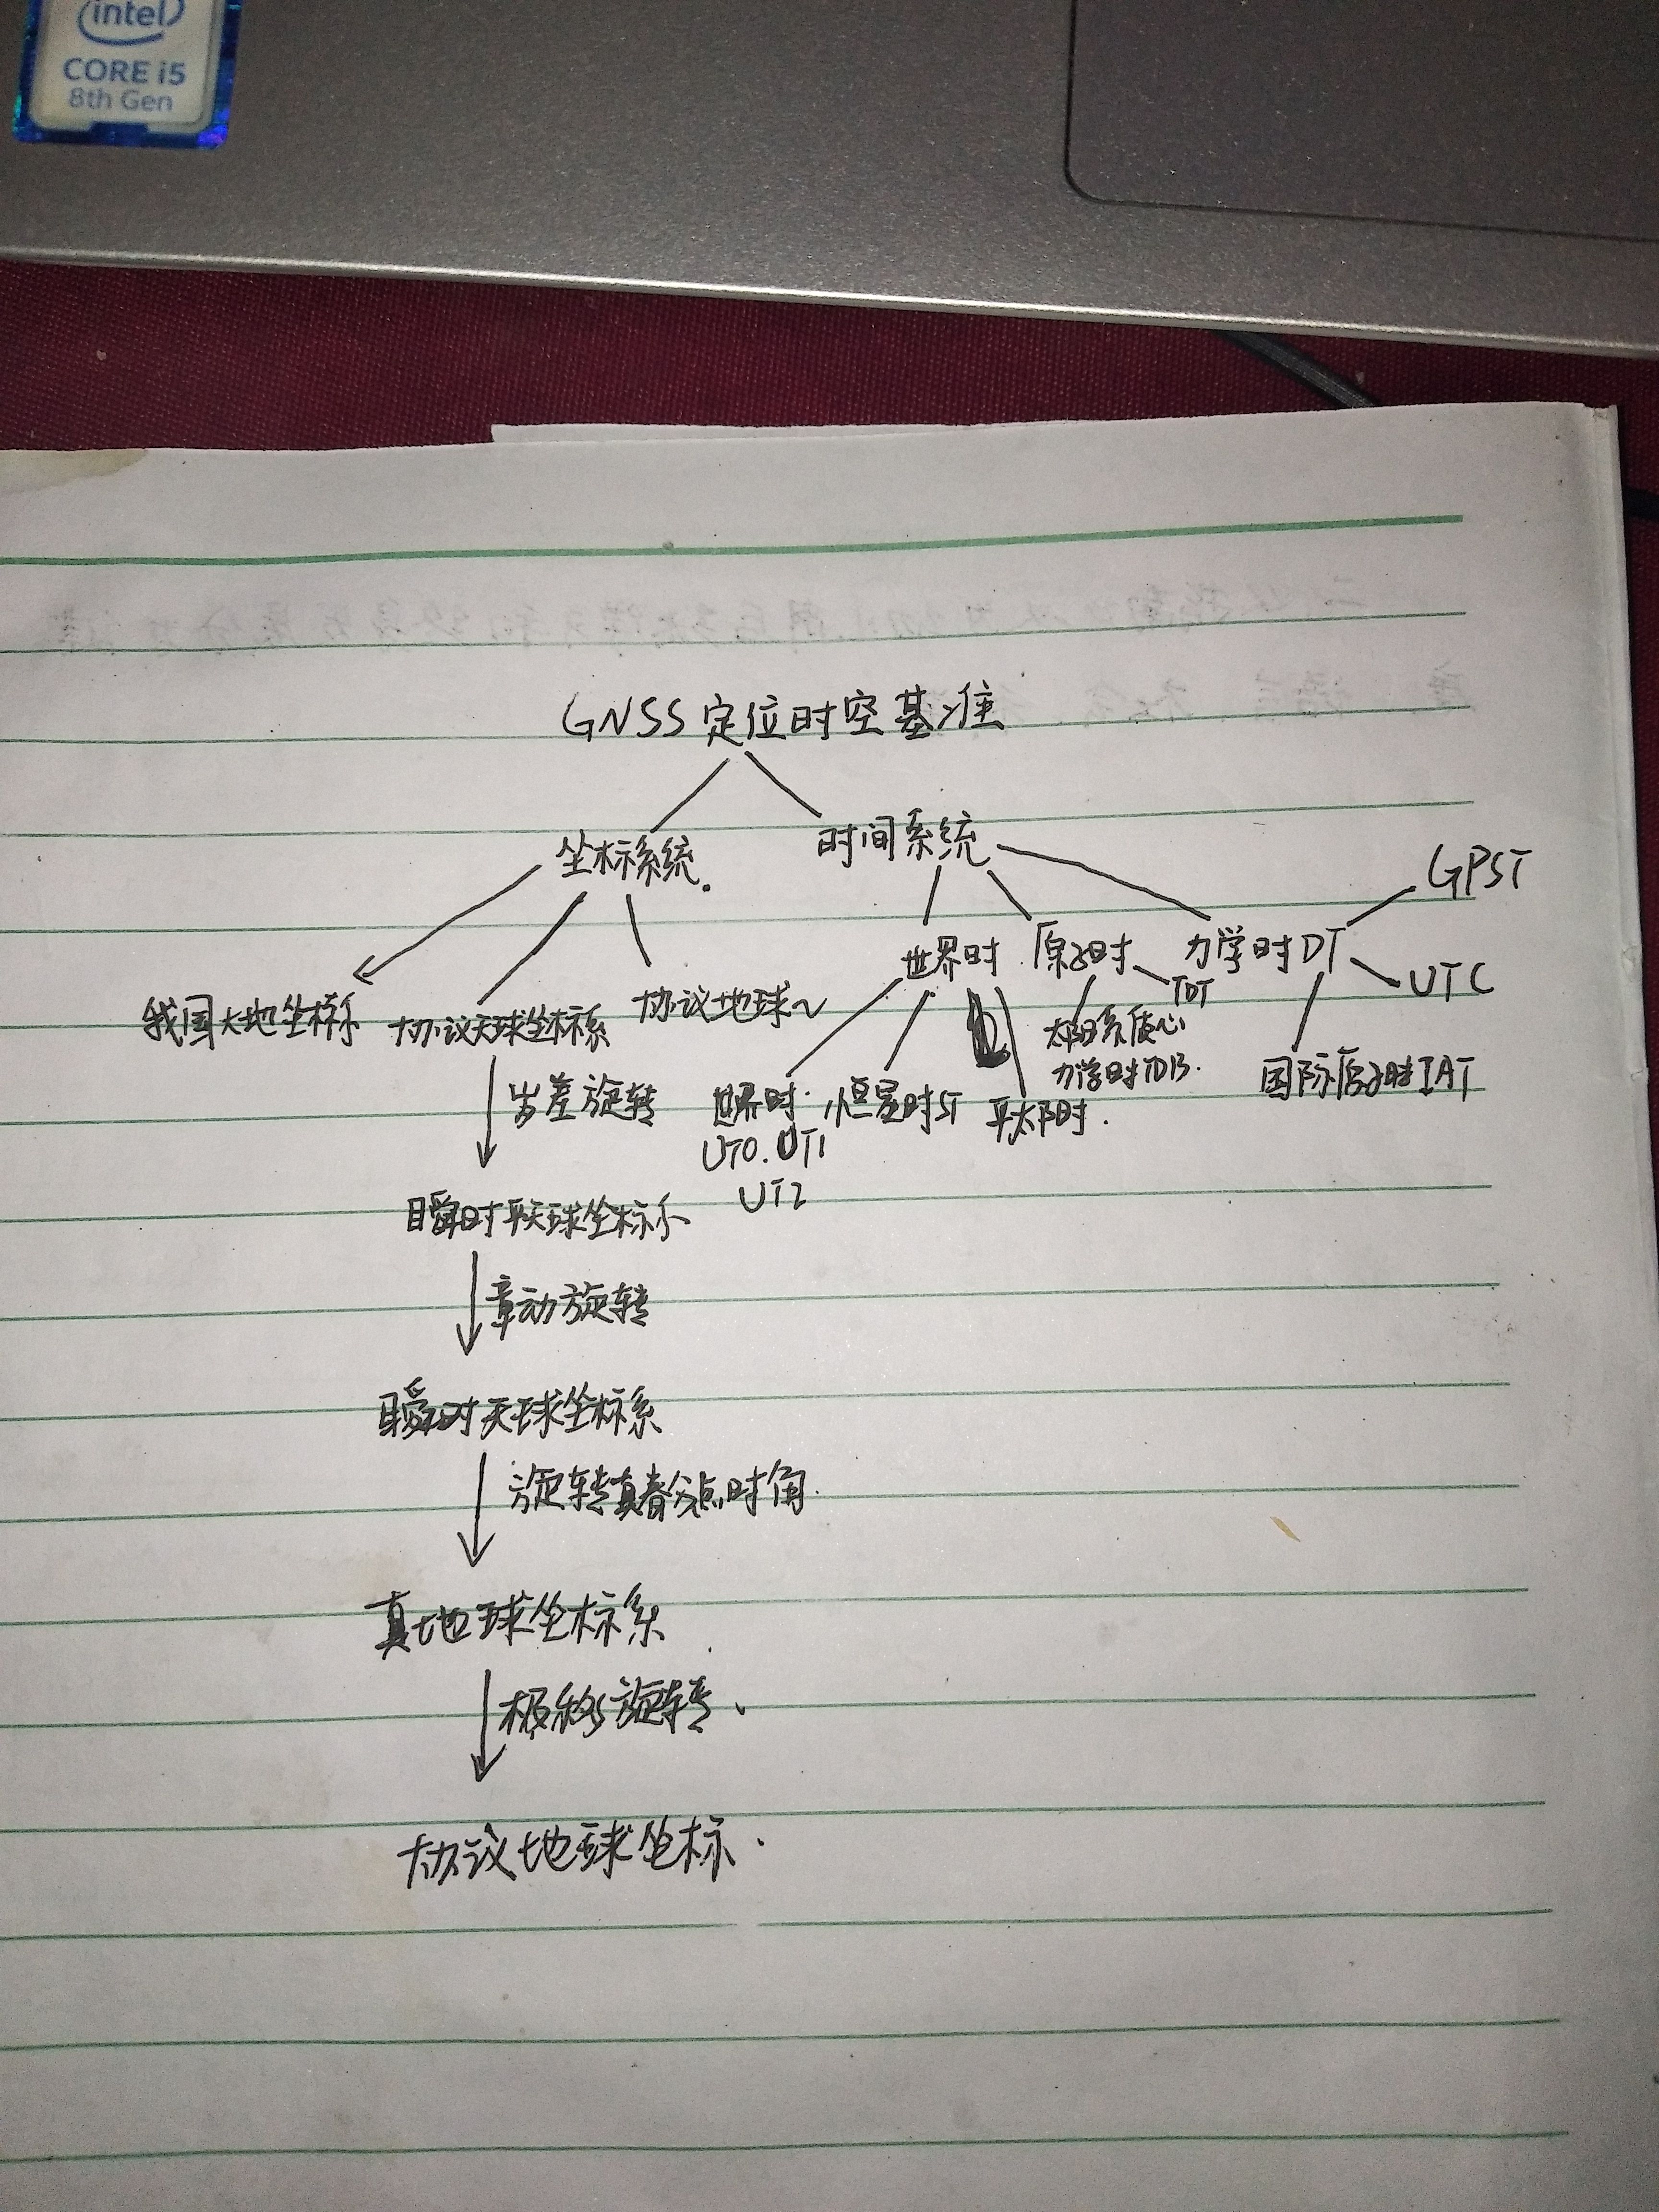 intel
CORE i5
8th Gen
GNSS定位时空基准
坐标系统.
时间系统
GPST
世界时
原子时
力学时DT
TDT
UTC
我国大地坐标系
协议天球坐标系
协议地球~
太阳系质心
力学时TDB.
国际原子时IAT
岁差旋转
世界时.
恒星时ST
平太阳时.
UT0.UT1
UT2
瞬时平天球坐标系
章动旋转
瞬时天球坐标系
旋转真春分点时角.
真地球坐标系
极移旋转、
协议地球坐标.